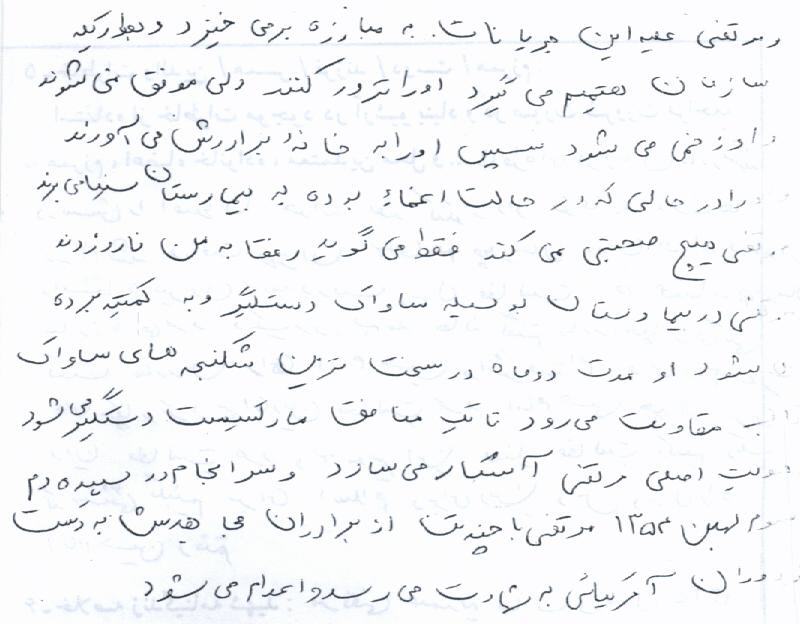 و مرتضی علیه این جریانات. به مبارزه برمی خیزد و بطوریکه
سازمان تصمیم می گیرد اورا ترور کنند ولی موفق نمی شوند
و او زخمی می شود سپس اورا به خانهٔ برادرش می آورند
و اورا در حالی که در حالت اغماء بوده به بیمارستان سینا می برند
مرتضی هیچ صحبتی نمی کند فقط می گوید رفقا به من نارو زدند
مرتضی در بیمارستان بوسیله ساواک دستگیر و به کمیته برده
می شود او مدت دو ماه در سخت ترین شکنجه های ساواک
مقاومت می رود تا یک منافق مارکسیست دستگیر می شود
اصلی مرتضی آشکار می سازد و سرانجام در سپیده دم
سوم بهمن ۱۳۵۴ مرتضی با چندتن از برادران مجاهدش به دست
مزدوران آمریکائی به شهادت می رسد و اعدام می شود